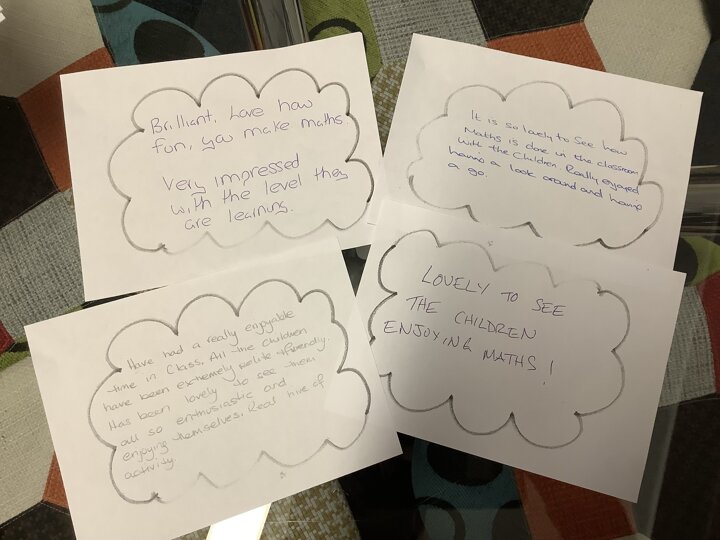 Brilliant. Love how
fun, you make maths.
Very impressed
with the level they
are learning.
It is so lovely to see how
Maths is done in the classroom
with the children. Really enjoyed
having a look around and having
a go.
Have had a really enjoyable
time in class. All the children
have been extremely polite & friendly.
Has been lovely to see them
all so enthusiastic and
enjoying themselves. Real hive of
activity.
LOVELY TO SEE
THE CHILDREN
ENJOYING MATHS!